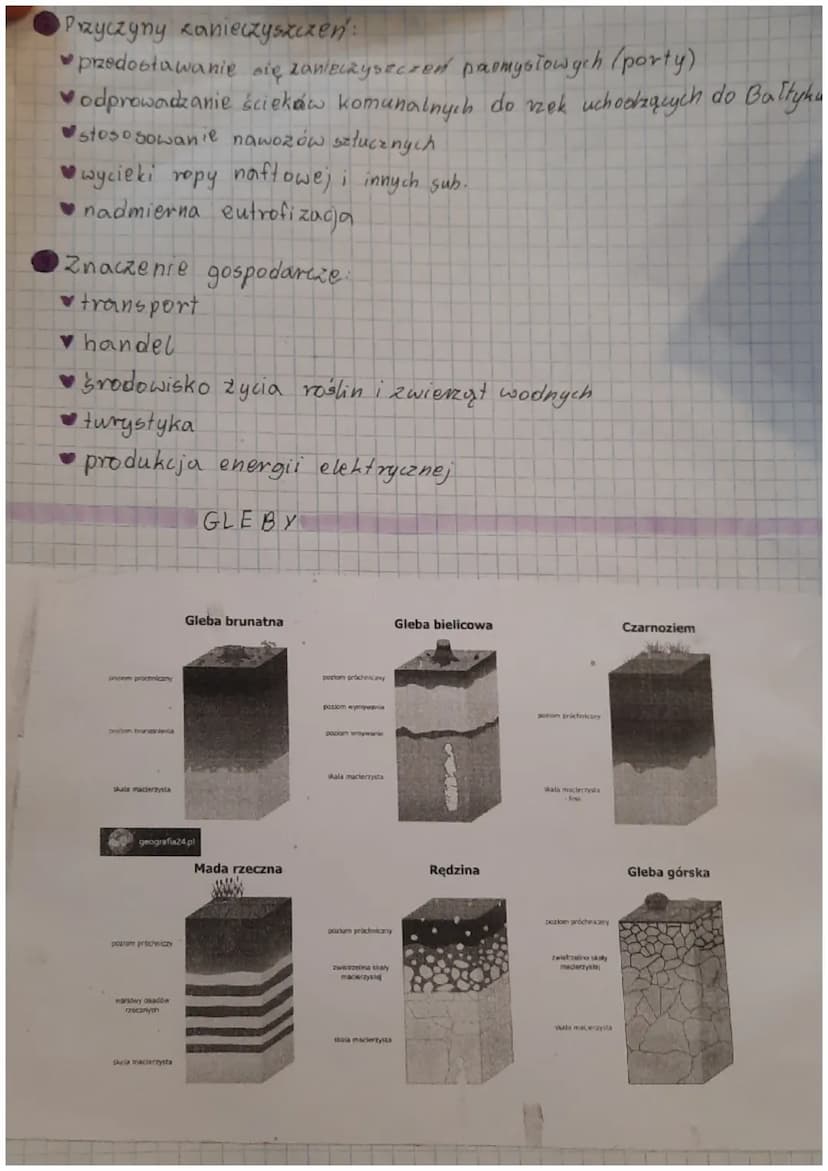 Przyczyny zanieczyszczeń:
przedostawanie się zanieczyszczeń przemysłowych (porty)
odprowadzanie ścieków komunalnych do rzek uchodzących do Bałtyku
stososowanie nawozów sztucznych
wycieki ropy naftowej i innych sub.
nadmierna eutrofizacja
Znaczenie gospodarcze:
transport
handel
środowisko życia roślin i zwierząt wodnych
turystyka
produkcja energii elektrycznej
GLEBY
Gleba brunatna
poziom próchniczny
poziom brunatnienia
skała macierzysta
Gleba bielicowa
poziom próchniczny
poziom wymywania
poziom wmywania
skała macierzysta
Czarnoziem
poziom próchniczny
skała macierzysta
- less
geografia24.pl
Mada rzeczna
poziom próchniczy
warstwy osadów
rzecznych
skała macierzysta
Rędzina
poziom próchniczny
zwietrzelina skały
macierzystej
skała macierzysta
Gleba górska
poziom próchniczny
zwietrzelina skały
macierzystej
skała macierzysta